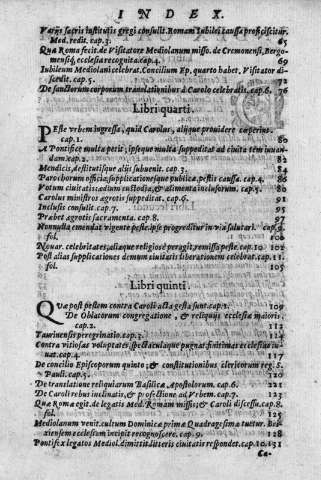 INDEX.
Varijs sacris institutis gregi consulit. Romam Iubilei caussa proficiscitur.
Med. redit. cap.3. 65
Quæ Romæ fecit. de Visitatore Mediolanum misso. de Cremonensi, Bergo-
mensiq; ecclesia recognita. cap.4. 69
Iubileum Mediolani celebrat. Concilium Ep. quarto habet, Visitator di-
scedit. cap.5. 72
De sanctorum corporum translationibus à Carolo celebratis. cap.6. 76
Libri quarti.
Peste vrbem ingressa, quid Carolus, alijque prouidere cœperint.
cap.1. 80
A Pontifice multa petit, ipseque multa suppeditat ad ciuitatem iuuan-
dam. cap.2. 82
Mendicis, destitutisque alijs subuenit. cap.3. 84
Parochorum officia, supplicationesque publicæ, pestis caussa. cap.4. 86
Votum ciuitatis: ædium custodia, & alimenta inclusorum. cap.5. 
Carolus ministros ægrotis suppeditat. cap.6. 91
Inclusis consulit. cap.7. 95
Præbet ægrotis sacramenta. cap.8. 97
Nonnulla emendat vigente peste. ipse progreditur in via salutari. cap.9.
fol.
Nouar. celebritates, aliaque religiosè peragit, remissa peste. cap.10. 102
Post alias supplicationes demum ciuitatis liberationem celebrat. cap.11.
fol. 105
Libri quinti.
Quæ post pestem contra Caroli acta gesta sunt. cap.1. 109
De Oblatorum congregatione, & reliquis ecclesiæ maioris.
cap.2. 112
Taurinensis peregrinatio. cap.3. 
Contra vitiosas voluptates, spectaculaque pugnat. finitimas ecclesias iu-
uat. cap.4. 117
De concilio Episcoporum quinto; & constitutionibus clericorum reg. S.
Pauli. cap.5. 
De translatione reliquiarum Basilicæ Apostolorum. cap.6. 
De Caroli rebus inclinatis, & profectione ad Vrbem. cap.7. 123
Quæ Romæ egit. de legatis Med. Romam missis; & Caroli discessu. cap.8.
fol. 125
Mediolanum venit. cultum Dominicæ Primæ Quadragesimæ tuetur. Bri-
xiensem ecclesiam incipit recognoscere. cap.9. 128
Pontifex legatos Mediol. dimittit. litteris ciuitatis respondet. cap.10. 131
Ca-